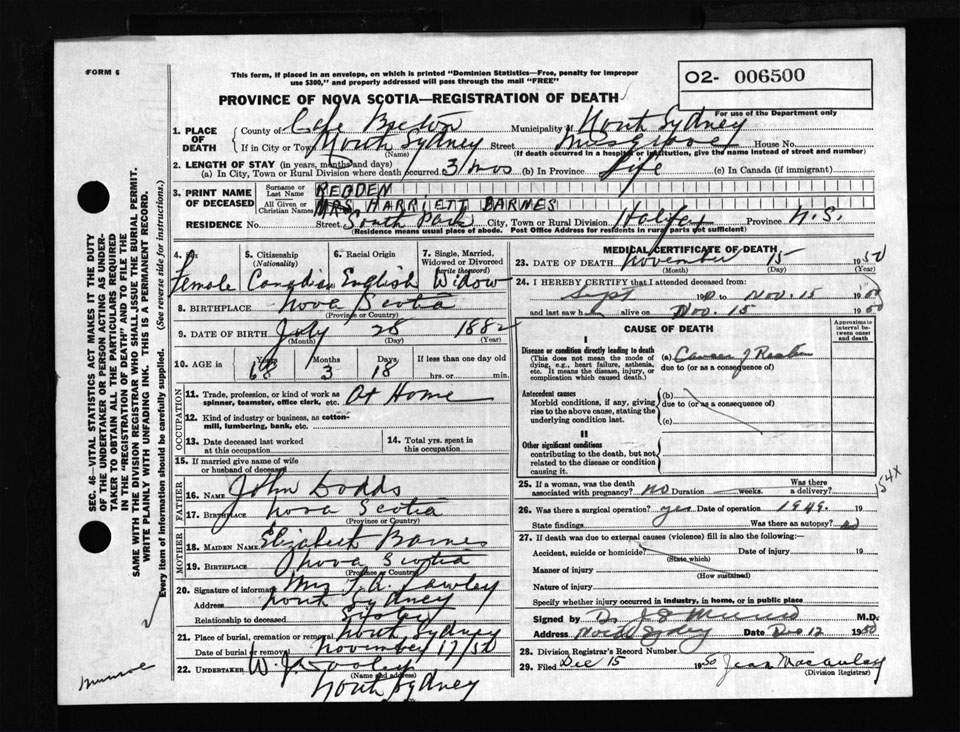 FORM 6
This form, if placed in an envelope, on which is printed "Dominion Statistics—Free, penalty for improper
use $300," and properly addressed will pass through the mail "FREE"
O2- 006500
For use of the Department only
PROVINCE OF NOVA SCOTIA—REGISTRATION OF DEATH
1. PLACE OF DEATH
County of Cape Breton Municipality of North Sydney
If in City or Town North Sydney Street House No.
(Name) (If death occurred in a hospital or institution, give the name instead of street and number)
2. LENGTH OF STAY (in years, months and days)
(a) In City, Town or Rural Division where death occurred 3 mos (b) In Province Life (c) In Canada (if immigrant)
3. PRINT NAME OF DECEASED
Surname or Last Name REDDEN
All Given or Christian Names MRS HARRIETT BARNES
RESIDENCE No. Street South Park City, Town or Rural Division Halifax Province N.S.
(Residence means usual place of abode. Post Office Address for residents in rural parts not sufficient)
4. Sex 5. Citizenship (Nationality) 6. Racial Origin 7. Single, Married, Widowed or Divorced (write the word)
Female Canadian English Widow
8. BIRTHPLACE Nova Scotia
(Province or Country)
9. DATE OF BIRTH July 28 1882
(Month) (Day) (Year)
10. AGE in Years Months Days If less than one day old
68 3 18 hrs. or min.
OCCUPATION
11. Trade, profession, or kind of work as spinner, teamster, office clerk, etc. At Home
12. Kind of industry or business, as cotton-mill, lumbering, bank, etc.
13. Date deceased last worked at this occupation
14. Total yrs. spent in this occupation
15. If married give name of wife or husband of deceased
FATHER
16. NAME John Dodds
17. BIRTHPLACE Nova Scotia
(Province or Country)
MOTHER
18. MAIDEN NAME Elizabeth Barnes
19. BIRTHPLACE Nova Scotia
(Province or Country)
20. Signature of informant Mrs
Address North Sydney
Relationship to deceased Sister
21. Place of burial, cremation or removal North Sydney
Date of burial or removal November 17/50
22. UNDERTAKER W. J. Dooley
(Name and address)
North Sydney
MEDICAL CERTIFICATE OF DEATH
23. DATE OF DEATH November 15 1950
(Month) (Day) (Year)
24. I HEREBY CERTIFY that I attended deceased from:
Sept 19 to Nov. 15 1950
and last saw h alive on Nov. 15 1950
CAUSE OF DEATH
Approximate interval between onset and death
I
Disease or condition directly leading to death
(This does not mean the mode of dying, e.g., heart failure, asthenia, etc. It means the disease, injury, or complication which caused death.)
(a) Cancer of Rectum
due to (or as a consequence of)
Antecedent causes
Morbid conditions, if any, giving rise to the above cause, stating the underlying condition last.
(b)
due to (or as a consequence of)
(c)
II
Other significant conditions
contributing to the death, but not related to the disease or condition causing it.
154X
25. If a woman, was the death associated with pregnancy? no Duration weeks. Was there a delivery?
26. Was there a surgical operation? yes Date of operation 1949. 19
State findings Was there an autopsy? no
27. If death was due to external causes (violence) fill in also the following:—
Accident, suicide or homicide? Date of injury 19
(State which)
Manner of injury
(How sustained)
Nature of injury
Specify whether injury occurred in industry, in home, or in public place
Signed by Dr. Munro M.D.
Address North Sydney Date Dec 12 1950
28. Division Registrar's Record Number
29. Filed Dec 15 1950 Jean Macauley
(Division Registrar)
SEC. 46—VITAL STATISTICS ACT MAKES IT THE DUTY
OF THE UNDERTAKER OR PERSON ACTING AS UNDER-
TAKER TO OBTAIN ALL THE PARTICULARS REQUIRED
IN THE "REGISTRATION OF DEATH" AND TO FILE THE
SAME WITH THE DIVISION REGISTRAR WHO SHALL ISSUE THE BURIAL PERMIT.
WRITE PLAINLY WITH UNFADING INK. THIS IS A PERMANENT RECORD.
Every item of information should be carefully supplied. (See reverse side for instructions.)
Munroe